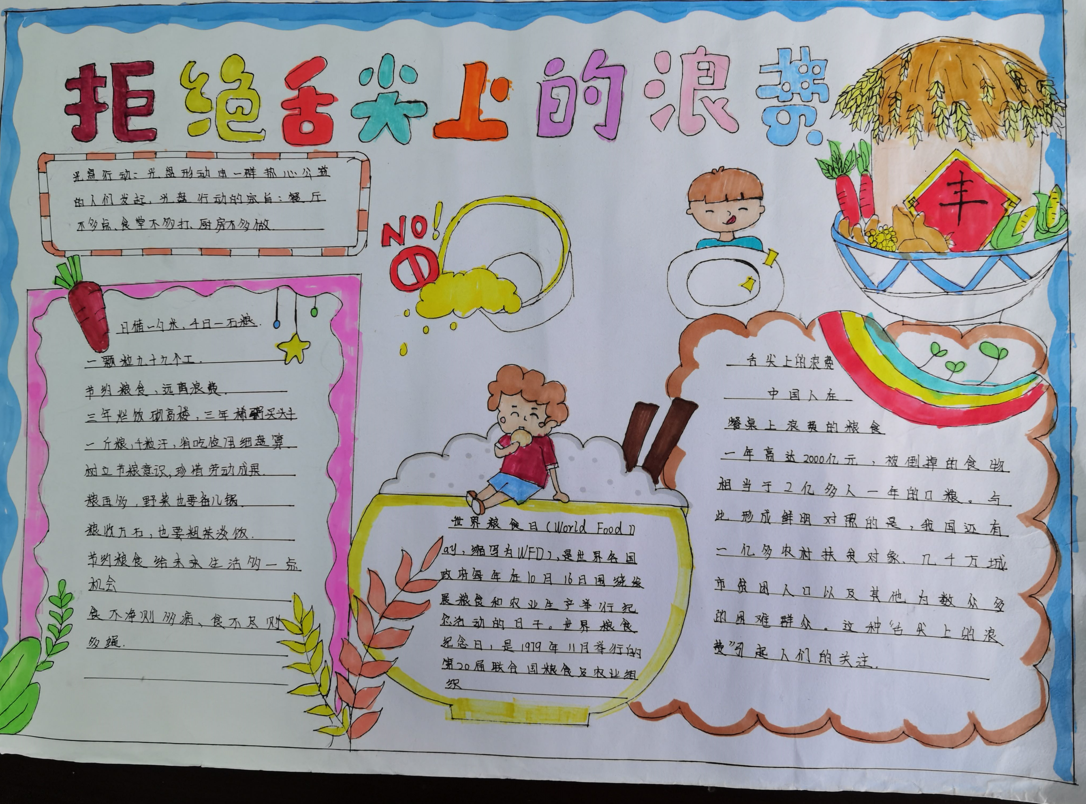 拒绝舌尖上的浪费
光盘行动:光盘形动由一群热心公道
的人们发起,光盘行动的宗旨:餐厅
不多点、食堂不多打、厨房不多做
NO!
丰
日储一勺米,千日一石粮.
一颗粮九十九个工.
节约粮食、远离浪费.
三年烂饭
一斤粮,千粒汗,省吃俭用细盘算.
树立节粮意识,珍惜劳动成果.
粮再多,野菜也要备几锅.
粮收万石,也要粗茶淡饭.
节约粮食给未来生活多一点
机会
食不净则多病、食不足则
多
世界粮食日(World Food D
ay,缩写为WFD),是世界各国
政府每年在10月16日围绕发
展粮食和农业生产举行纪
念活动的日子。世界粮食
纪念日,是1979年11月举行的
第20届联合国粮食及农业组
织
舌尖上的浪费
中国人在
餐桌上浪费的粮食
一年高达2000亿元,被倒掉的食物
相当于2亿多人一年的口粮。与
此形成鲜明对照的是,我国还有
一亿多农村扶贫对象、几千万城
市贫困人口以及其他为数众多
的困难群众。这种“舌尖上的浪
费”引起人们的关注.